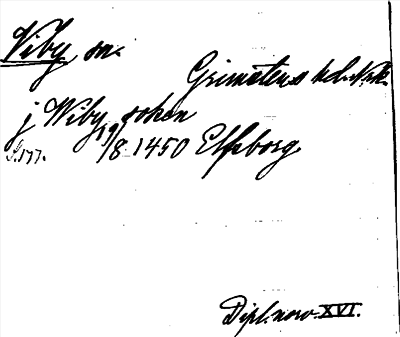 Viby sn.
Grimstens hd. Nrk.
j Wiby soken
19/8 1450 Elfsborg
S. 177.
Dipl. norv. XVI.